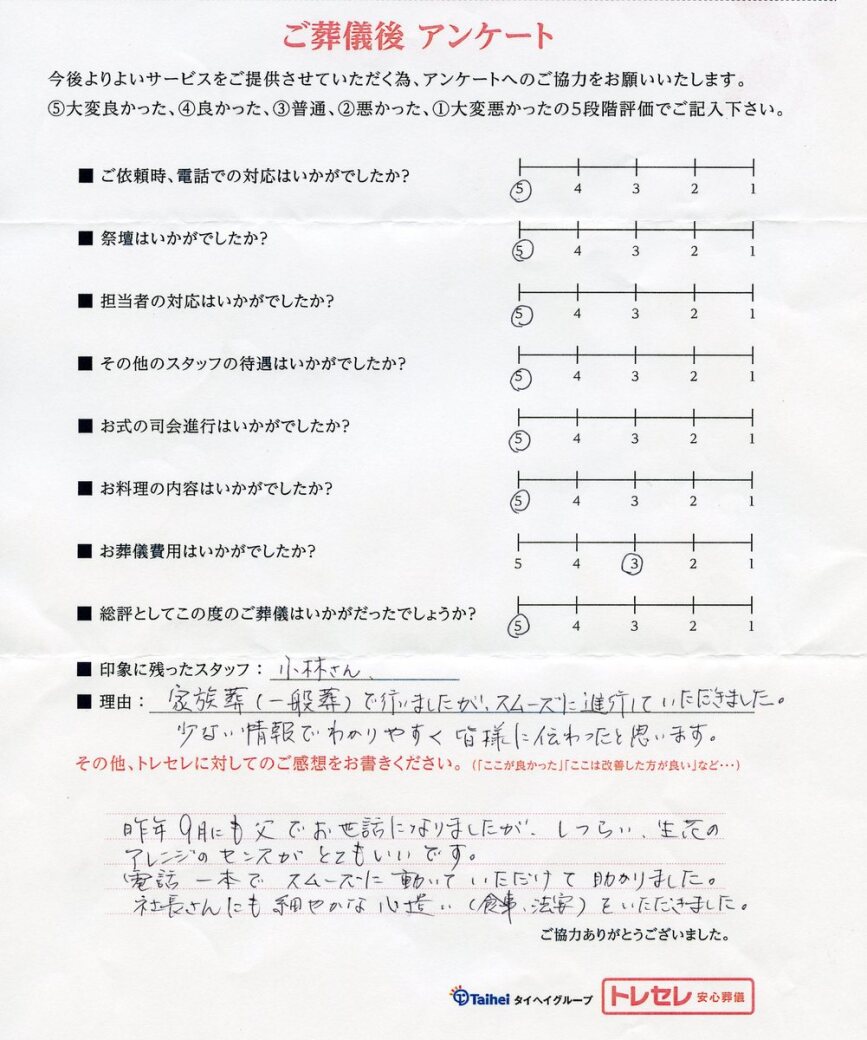 ご葬儀後 アンケート
今後よりよいサービスをご提供させていただく為、アンケートへのご協力をお願いいたします。
⑤大変良かった、④良かった、③普通、②悪かった、①大変悪かったの5段階評価でご記入下さい。
■ ご依頼時、電話での対応はいかがでしたか? 5 4 3 2 1
■ 祭壇はいかがでしたか? 5 4 3 2 1
■ 担当者の対応はいかがでしたか? 5 4 3 2 1
■ その他のスタッフの待遇はいかがでしたか? 5 4 3 2 1
■ お式の司会進行はいかがでしたか? 5 4 3 2 1
■ お料理の内容はいかがでしたか? 5 4 3 2 1
■ お葬儀費用はいかがでしたか? 5 4 3 2 1
■ 総評としてこの度のご葬儀はいかがだったでしょうか? 5 4 3 2 1
■ 印象に残ったスタッフ : 小林さん、
■ 理由 : 家族葬(一般葬)で行いましたが、スムーズに進行していただきました。
少ない情報でわかりやすく皆様に伝わったと思います。
その他、トレセレに対してのご感想をお書きください。(「ここが良かった」「ここは改善した方が良い」など…)
昨年9月にも父でお世話になりましたが、しつらい、生花の
アレンジのセンスがとてもいいです。
電話一本でスムーズに動いていただけて助かりました。
社長さんにも細やかな心遣い(食事、法要)をいただきました。
ご協力ありがとうございました。
Taihei タイヘイグループ トレセレ 安心葬儀